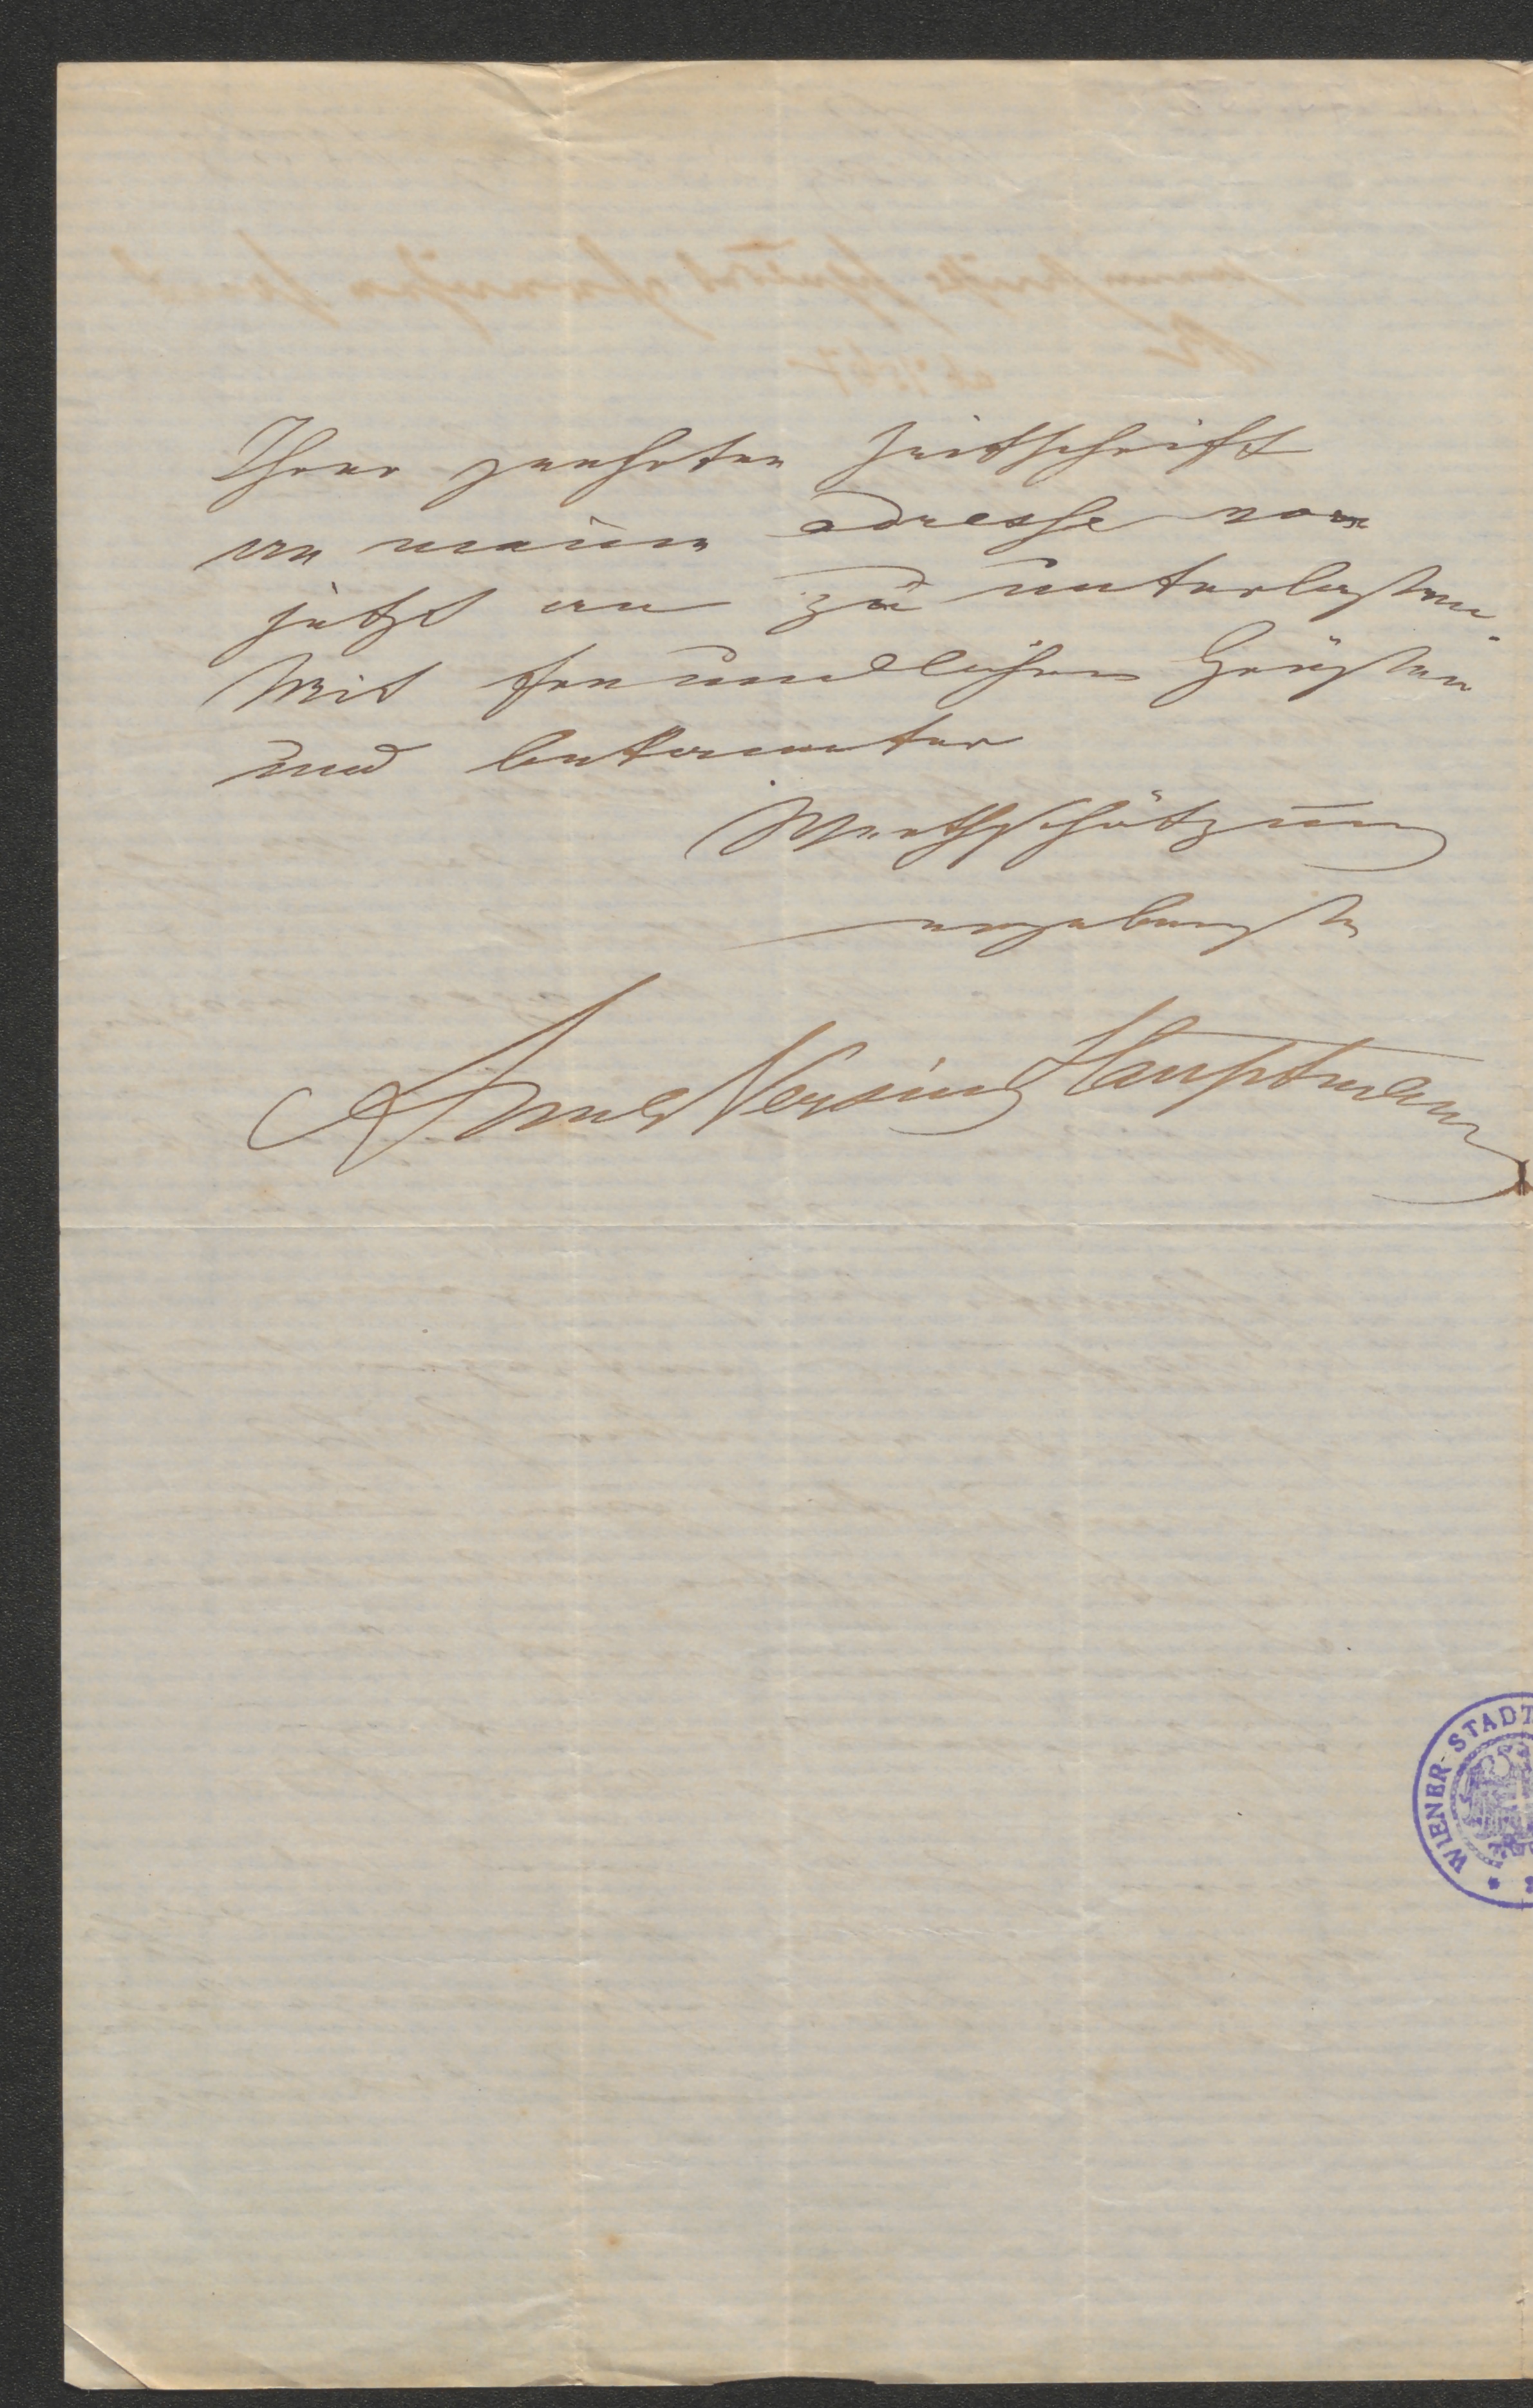 Ihrer geehrten Zeitschrift
an meine Adresse von
jetzt an zu unterlassen.
Mit freundlichen Grüssen
und bekannter
Werthschätzung
ergebenste
Anna Versing Hauptmann
WIENER STADT